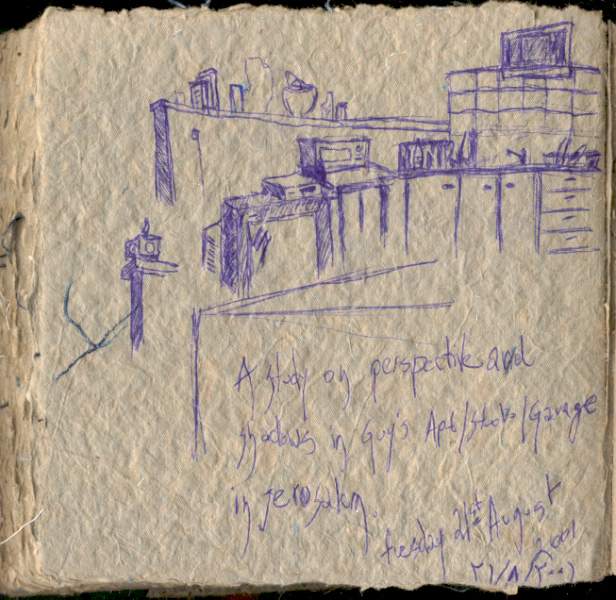 A study on perspective and
shadows in Guy's Apt/Studio/Garage
in Jerusalem.
Tuesday 21st August
2001
٢١/٨/٢٠٠١